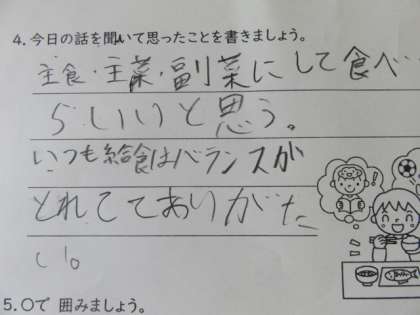 4. 今日の話を聞いて思ったことを書きましょう。
主食・主菜・副菜にして食べ
らいいと思う。
いつも給食はバランスが
とれてておりがた
い。
5.〇で 囲みましょう。